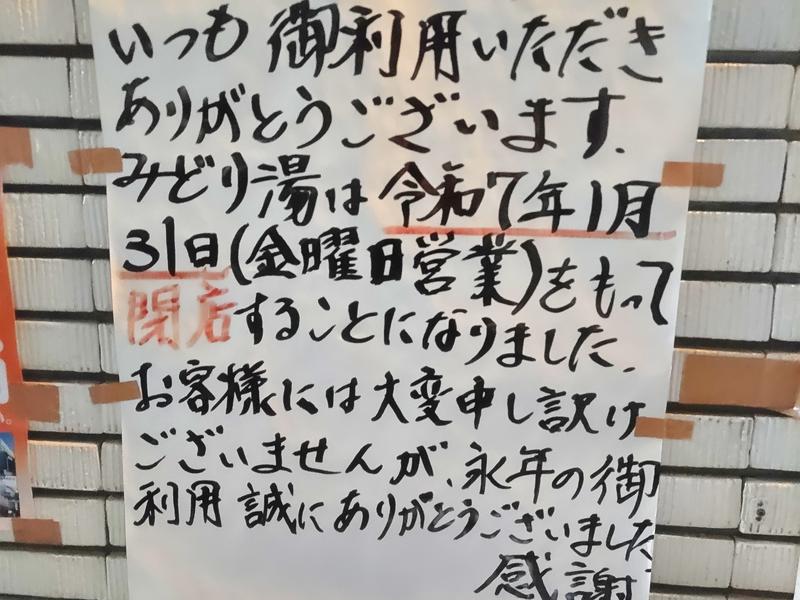 いつも御利用いただき
ありがとうございます.
みどり湯は令和7年1月
31日(金曜日営業)をもって
閉店することになりました.
お客様には大変申し訳け
ございませんが、永年の御
利用誠にありがとうございました
感謝